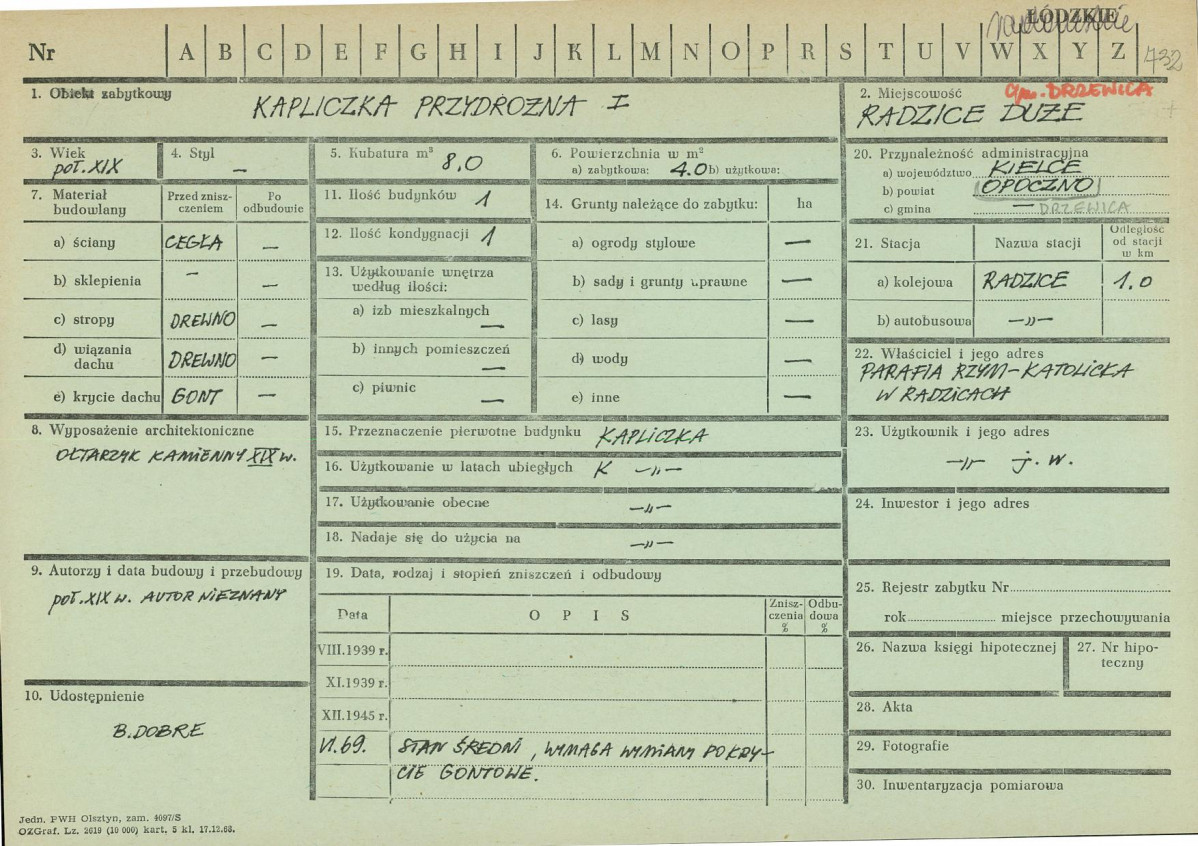 ŁÓDZKIE
Nr A B C D E F G H I J K L M N O P R S T U V W X Y Z 432
1. Obiekt zabytkowy
KAPLICZKA PRZYDROŻNA I
2. Miejscowość gm. DRZEWICA
RADZICE DUŻE
3. Wiek
poł. XIX
4. Styl
—
5. Kubatura m³ 8,0
6. Powierzchnia w m²
a) zabytkowa: 4.0 b) użytkowa:
20. Przynależność administracyjna
a) województwo KIELCE
b) powiat OPOCZNO
c) gmina — DRZEWICA
7. Materiał budowlany
Przed zniszczeniem
Po odbudowie
a) ściany CEGŁA —
b) sklepienia — —
c) stropy DREWNO —
d) wiązania dachu DREWNO —
e) krycie dachu GONT —
11. Ilość budynków 1
12. Ilość kondygnacji 1
13. Użytkowanie wnętrza
według ilości:
a) izb mieszkalnych —
b) innych pomieszczeń —
c) piwnic —
14. Grunty należące do zabytku: ha
a) ogrody stylowe —
b) sady i grunty uprawne —
c) lasy —
d) wody —
e) inne —
21. Stacja Nazwa stacji Odległość od stacji w km
a) kolejowa RADZICE 1.0
b) autobusowa —„—
22. Właściciel i jego adres
PARAFIA RZYM-KATOLICKA
W RADZICACH
8. Wyposażenie architektoniczne
OŁTARZYK KAMIENNY XIX w.
15. Przeznaczenie pierwotne budynku KAPLICZKA
16. Użytkowanie w latach ubiegłych K —„—
17. Użytkowanie obecne —„—
18. Nadaje się do użycia na —„—
23. Użytkownik i jego adres
—„— j. w.
24. Inwestor i jego adres
9. Autorzy i data budowy i przebudowy
poł. XIX w. AUTOR NIEZNANY
10. Udostępnienie
B. DOBRE
19. Data, rodzaj i stopień zniszczeń i odbudowy
Data OPIS Zniszczenia % Odbudowa %
VIII.1939 r.
XI.1939 r.
XII.1945 r.
VI.69. STAN ŚREDNI, WYMAGA WYMIANY POKRY-
CIE GONTOWE.
25. Rejestr zabytku Nr
rok miejsce przechowywania
26. Nazwa księgi hipotecznej
27. Nr hipo-
teczny
28. Akta
29. Fotografie
30. Inwentaryzacja pomiarowa
Jedn. PWH Olsztyn, zam. 4097/S
OZGraf. Lz. 2619 (10 000) kart. 5 kl. 17.12.68.